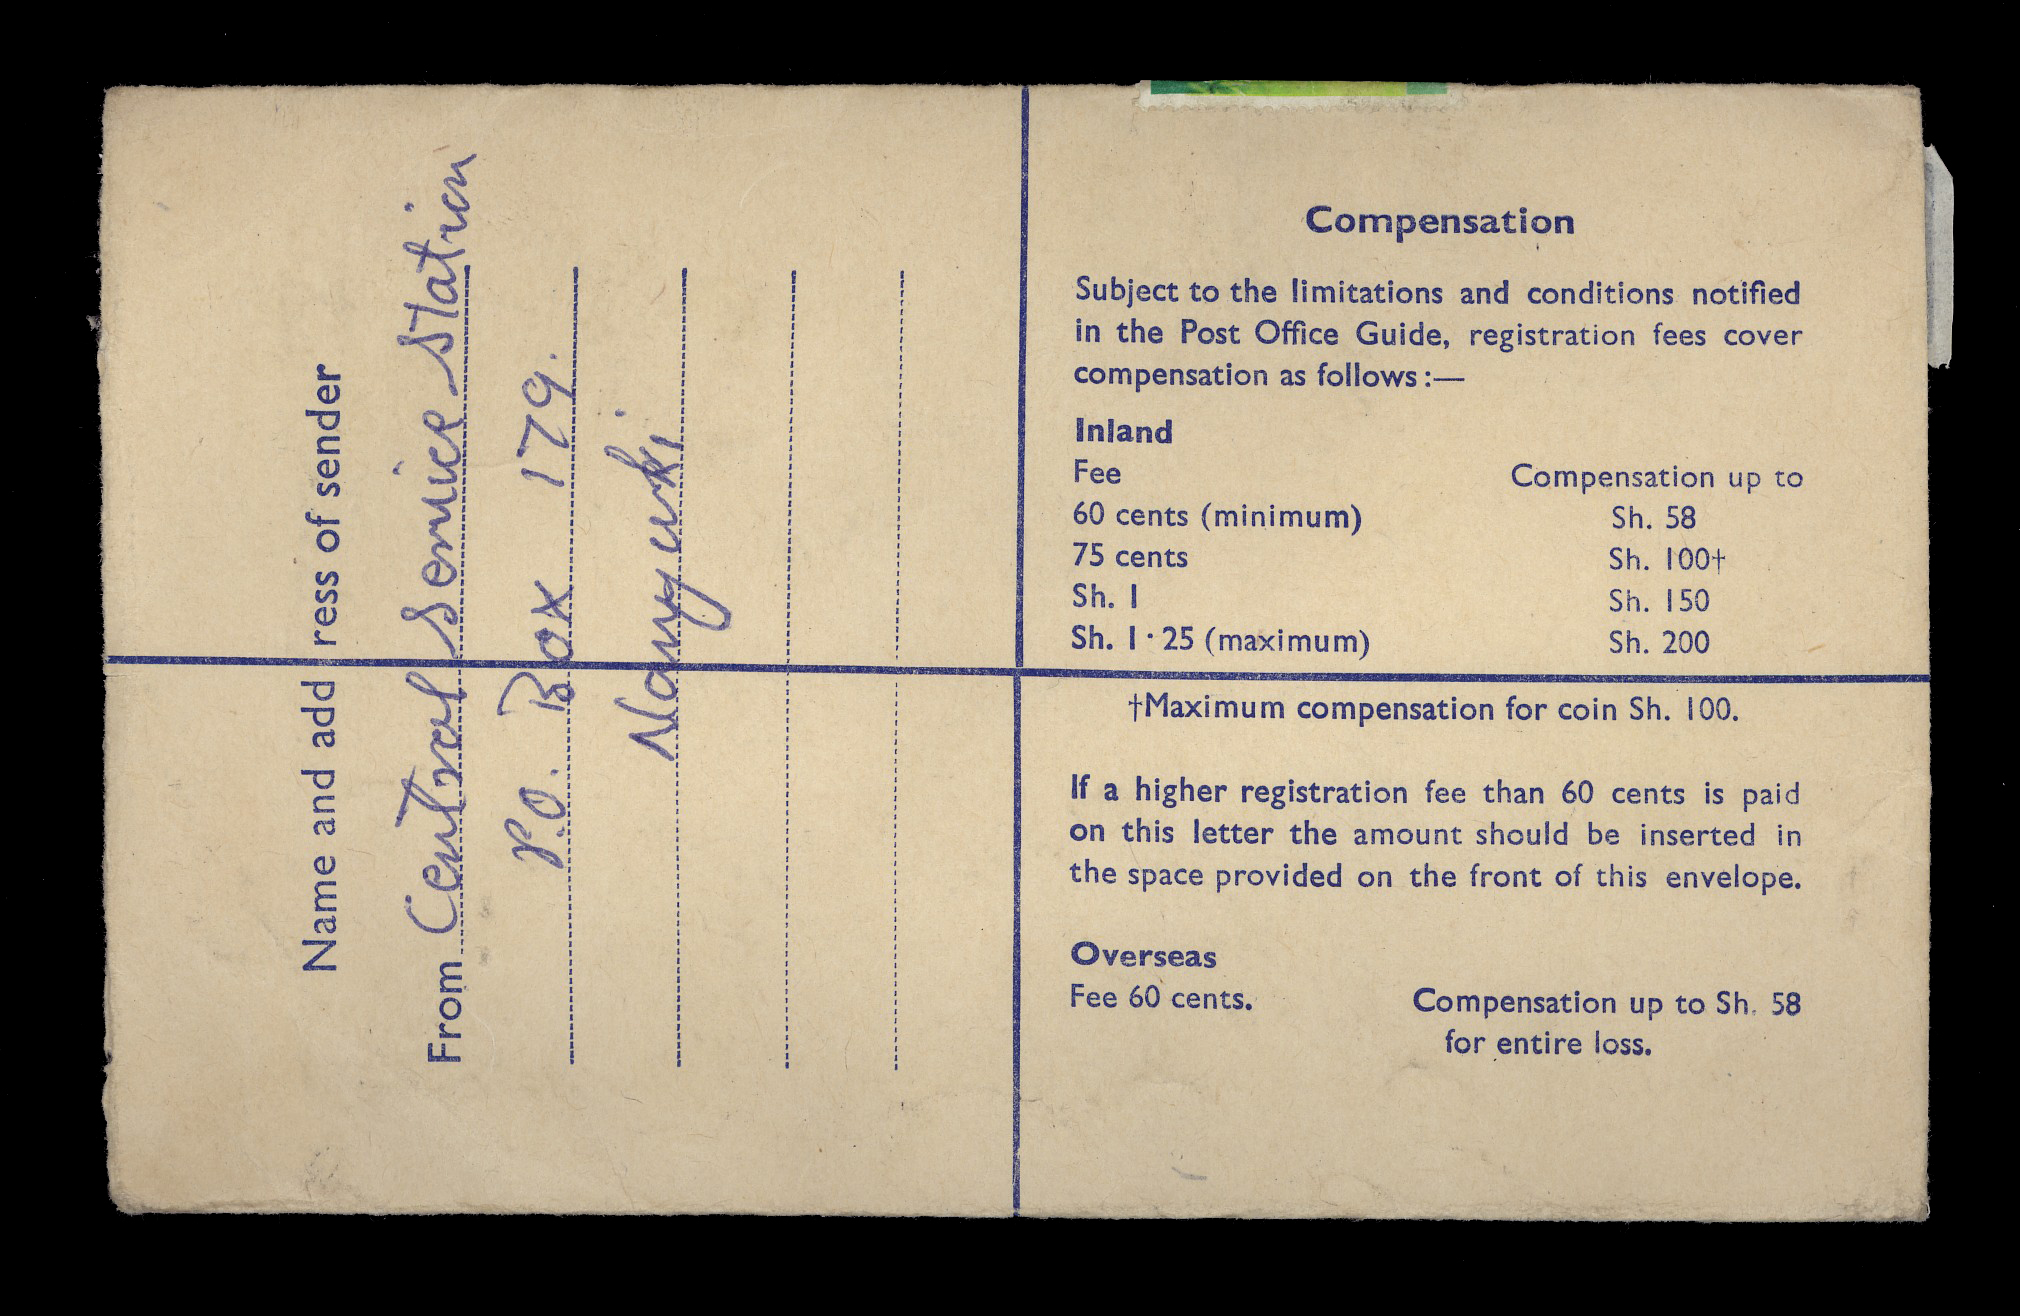 Name and add ress of sender
From Central Service Station
P.O. Box 179.
Nanyuki
Compensation
Subject to the limitations and conditions notified
in the Post Office Guide, registration fees cover
compensation as follows :—
Inland
Fee Compensation up to
60 cents (minimum) Sh. 58
75 cents Sh. 100†
Sh. 1 Sh. 150
Sh. 1·25 (maximum) Sh. 200
†Maximum compensation for coin Sh. 100.
If a higher registration fee than 60 cents is paid
on this letter the amount should be inserted in
the space provided on the front of this envelope.
Overseas
Fee 60 cents. Compensation up to Sh. 58
for entire loss.